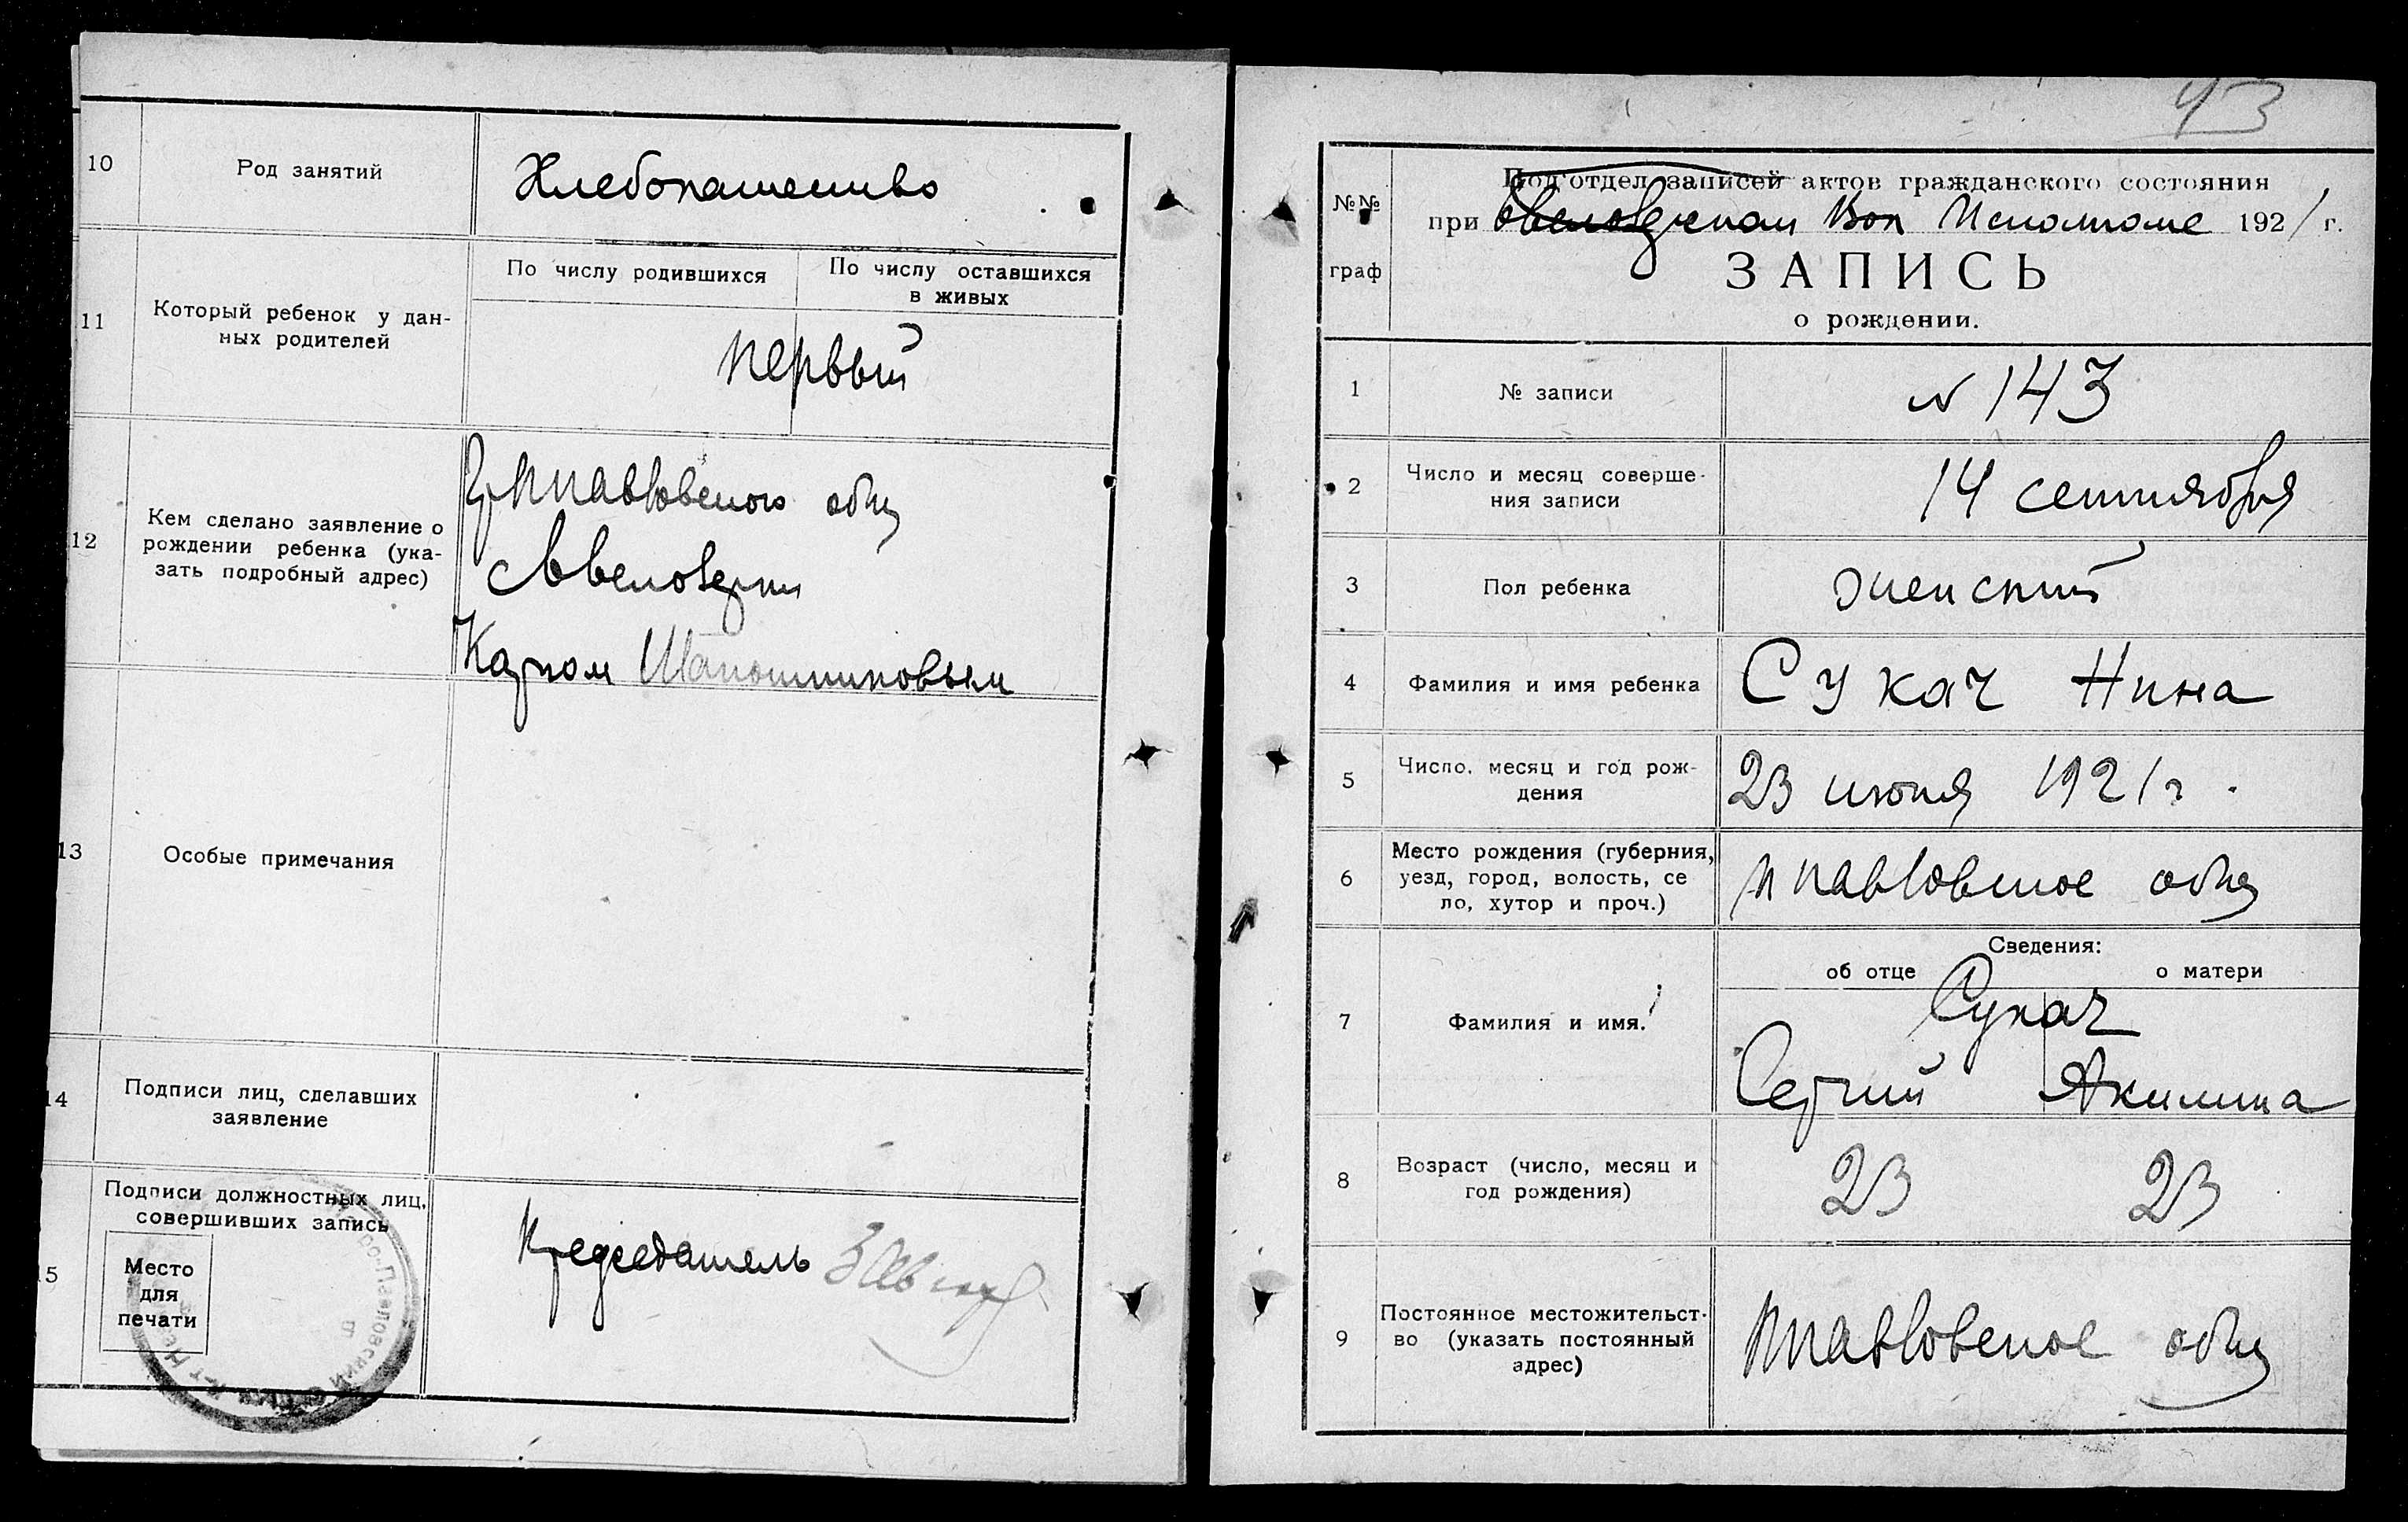 10
Род занятий
Хлебопашество
11
Который ребенок у дан-
ных родителей
По числу родившихся
По числу оставшихся
в живых
первый
12
Кем сделано заявление о
рождении ребенка (ука-
зать подробный адрес)
Гр Ппавловского общ
Карпом Шапошниковым
13
Особые примечания
14
Подписи лиц, сделавших
заявление
5
Подписи должностных лиц,
совершивших запись
Место
для
печати
Председатель
43
№№
граф
Подотдел записей актов гражданского состояния
при Вол Исполкоме 1921 г.
ЗАПИСЬ
о рождении.
1
№ записи
№ 143
2
Число и месяц соверше-
ния записи
14 сентября
3
Пол ребенка
женский
4
Фамилия и имя ребенка
Сукач Нина
5
Число, месяц и год рож-
дения
23 июня 1921 г.
6
Место рождения (губерния,
уезд, город, волость, се
ло, хутор и проч.)
Ппавловское общ
Сведения:
об отце
о матери
7
Фамилия и имя.
Сукач
Сергий Акилина
8
Возраст (число, месяц и
год рождения)
23 23
9
Постоянное местожительст-
во (указать постоянный
адрес)
Ппавловское общ